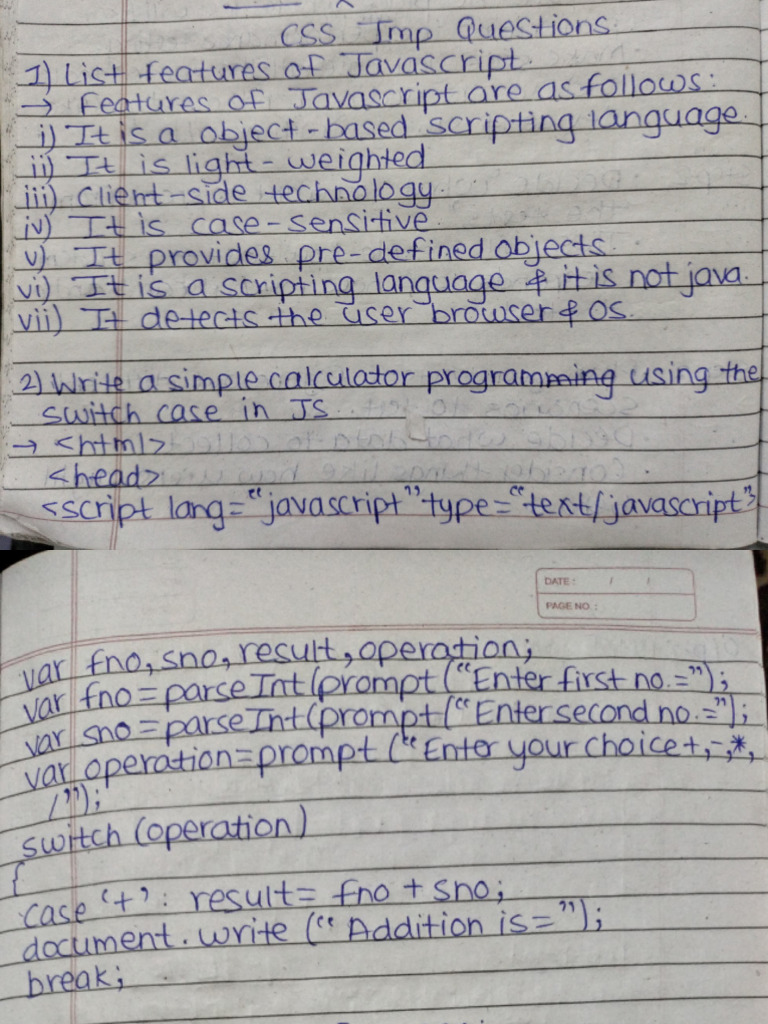 CSS Imp Questions.
1) List features of Javascript.
→ Features of Javascript are as follows:
i) It is a object-based scripting language.
ii) It is light-weighted
iii) Client-side technology.
iv) It is case-sensitive.
v) It provides pre-defined objects.
vi) It is a scripting language & it is not java.
vii) It detects the user browser & OS.
2) Write a simple calculator programming using the
switch case in JS.
→ <html>
<head>
<script lang="javascript" type="text/javascript">
DATE: / /
PAGE NO.:
var fno, sno, result, operation;
var fno = parseInt(prompt("Enter first no.=");
var sno = parseInt(prompt("Enter second no.=");
var operation=prompt ("Enter your choice +,-,*,
/");
switch (operation)
{
case '+': result= fno + sno;
document.write ("Addition is=");
break;